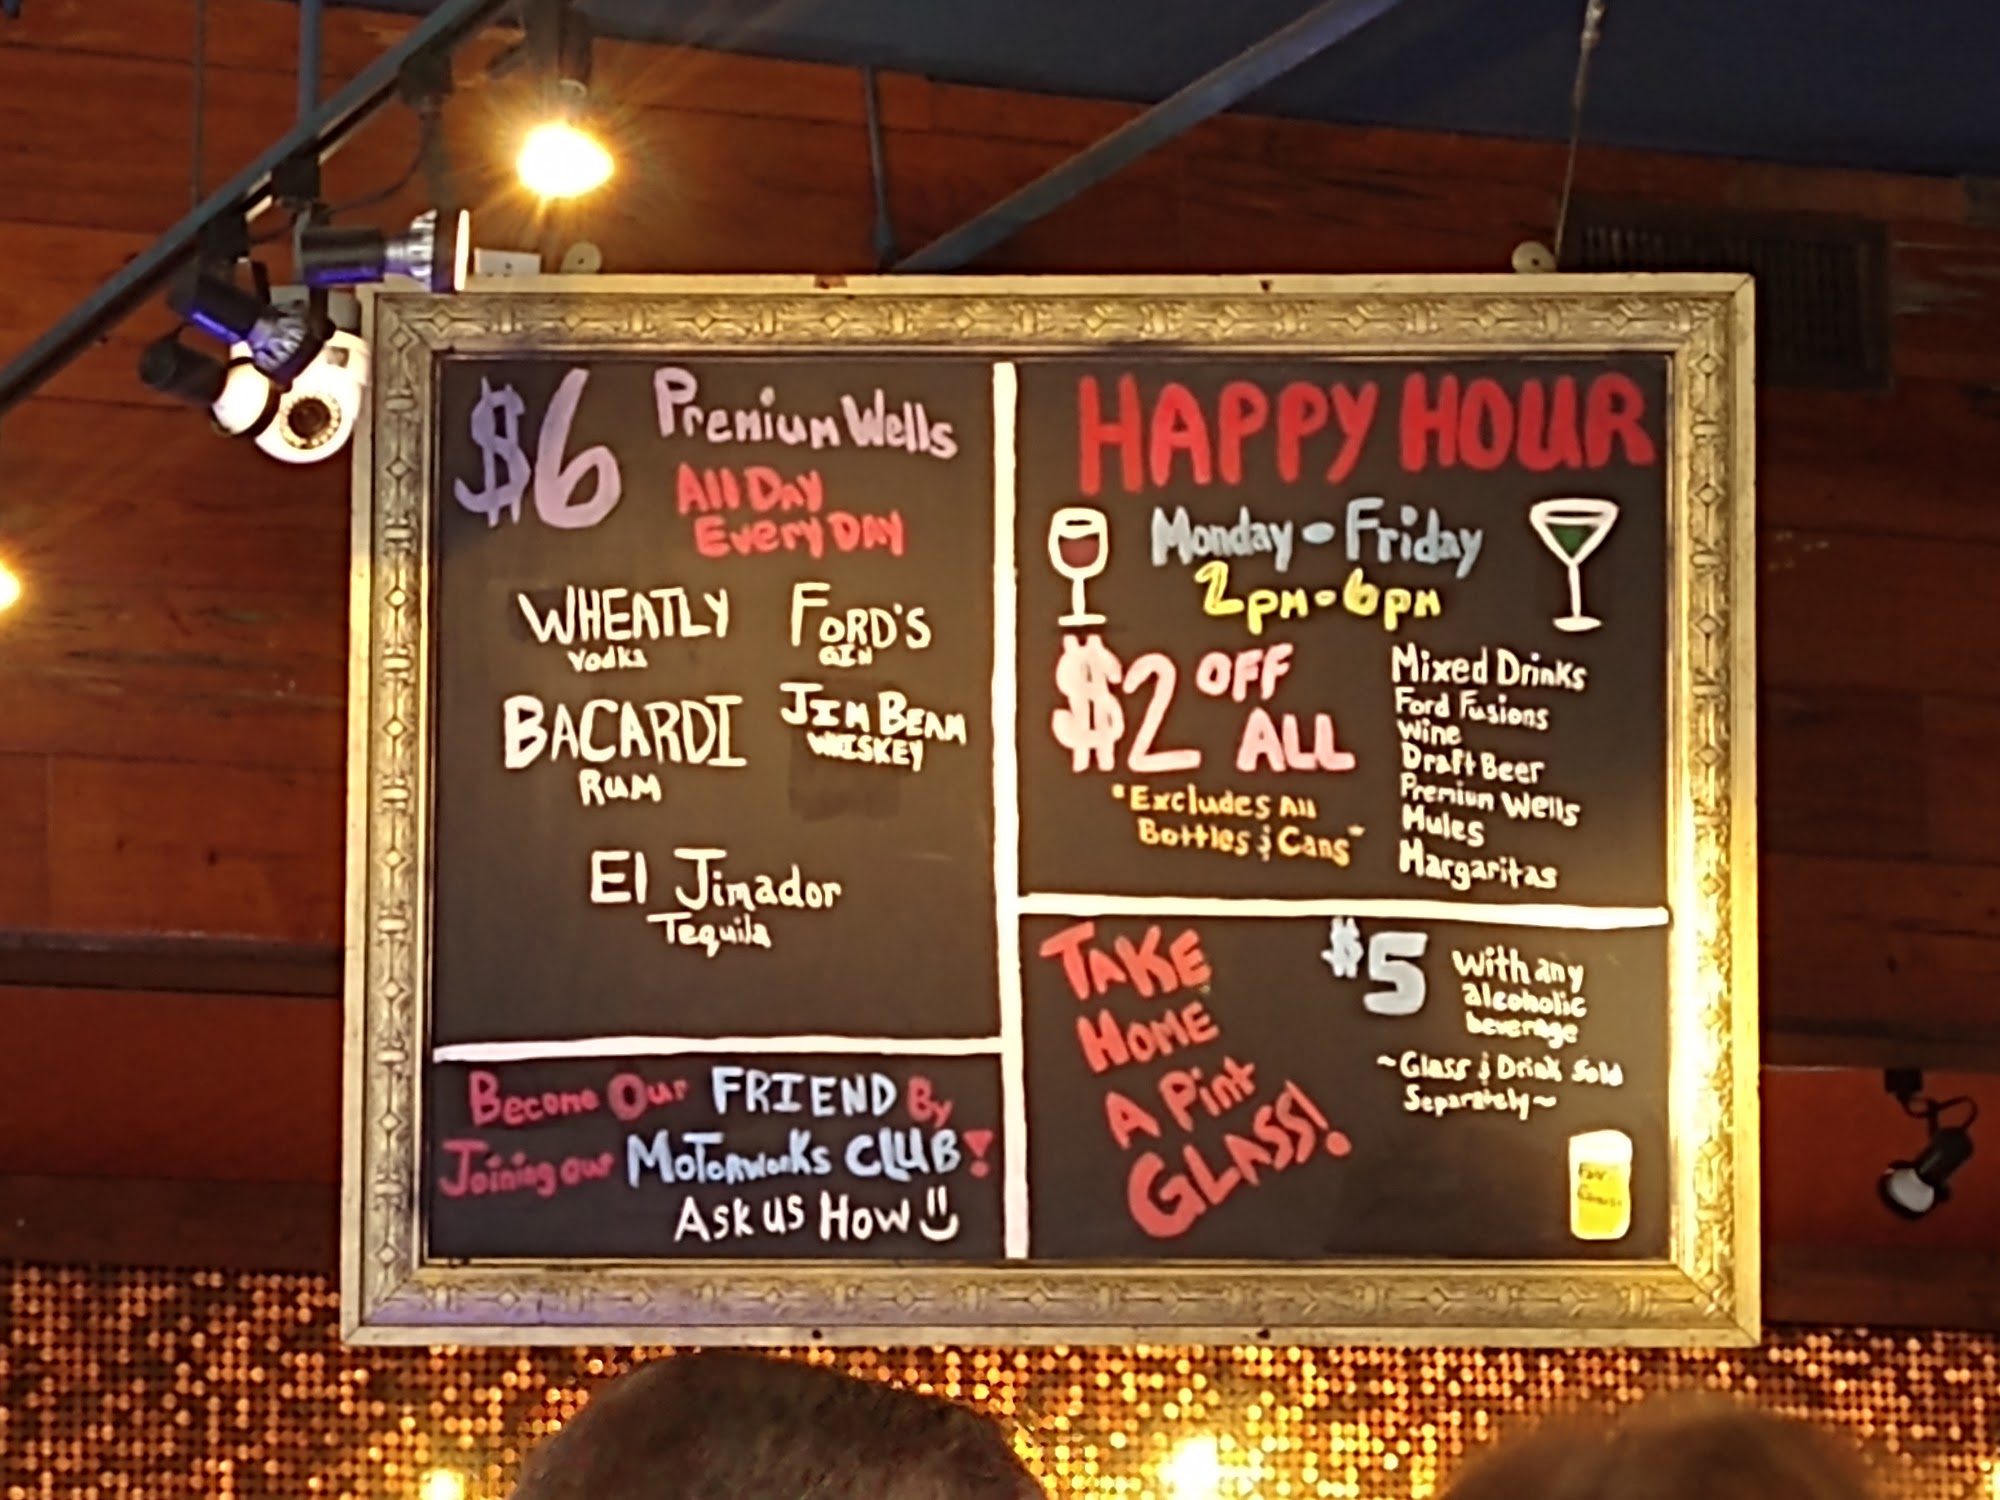 $6 Premium Wells
All Day
Every Day
WHEATLY
Vodka
FORD'S
GIN
BACARDI
RUM
JIM BEAM
WHISKEY
El Jimador
Tequila
Become Our FRIEND By
Joining our MOTORWORKS CLUB!
ASK US HOW
HAPPY HOUR
Monday - Friday
2pm - 6pm
$2 OFF
ALL
*Excludes All
Bottles & Cans*
Mixed Drinks
Ford Fusions
Wine
Draft Beer
Premiun Wells
Mules
Margaritas
TAKE
HOME
A Pint
GLASS!
$5 with any
alcoholic
beverage
~Glass & Drink Sold
Separately~